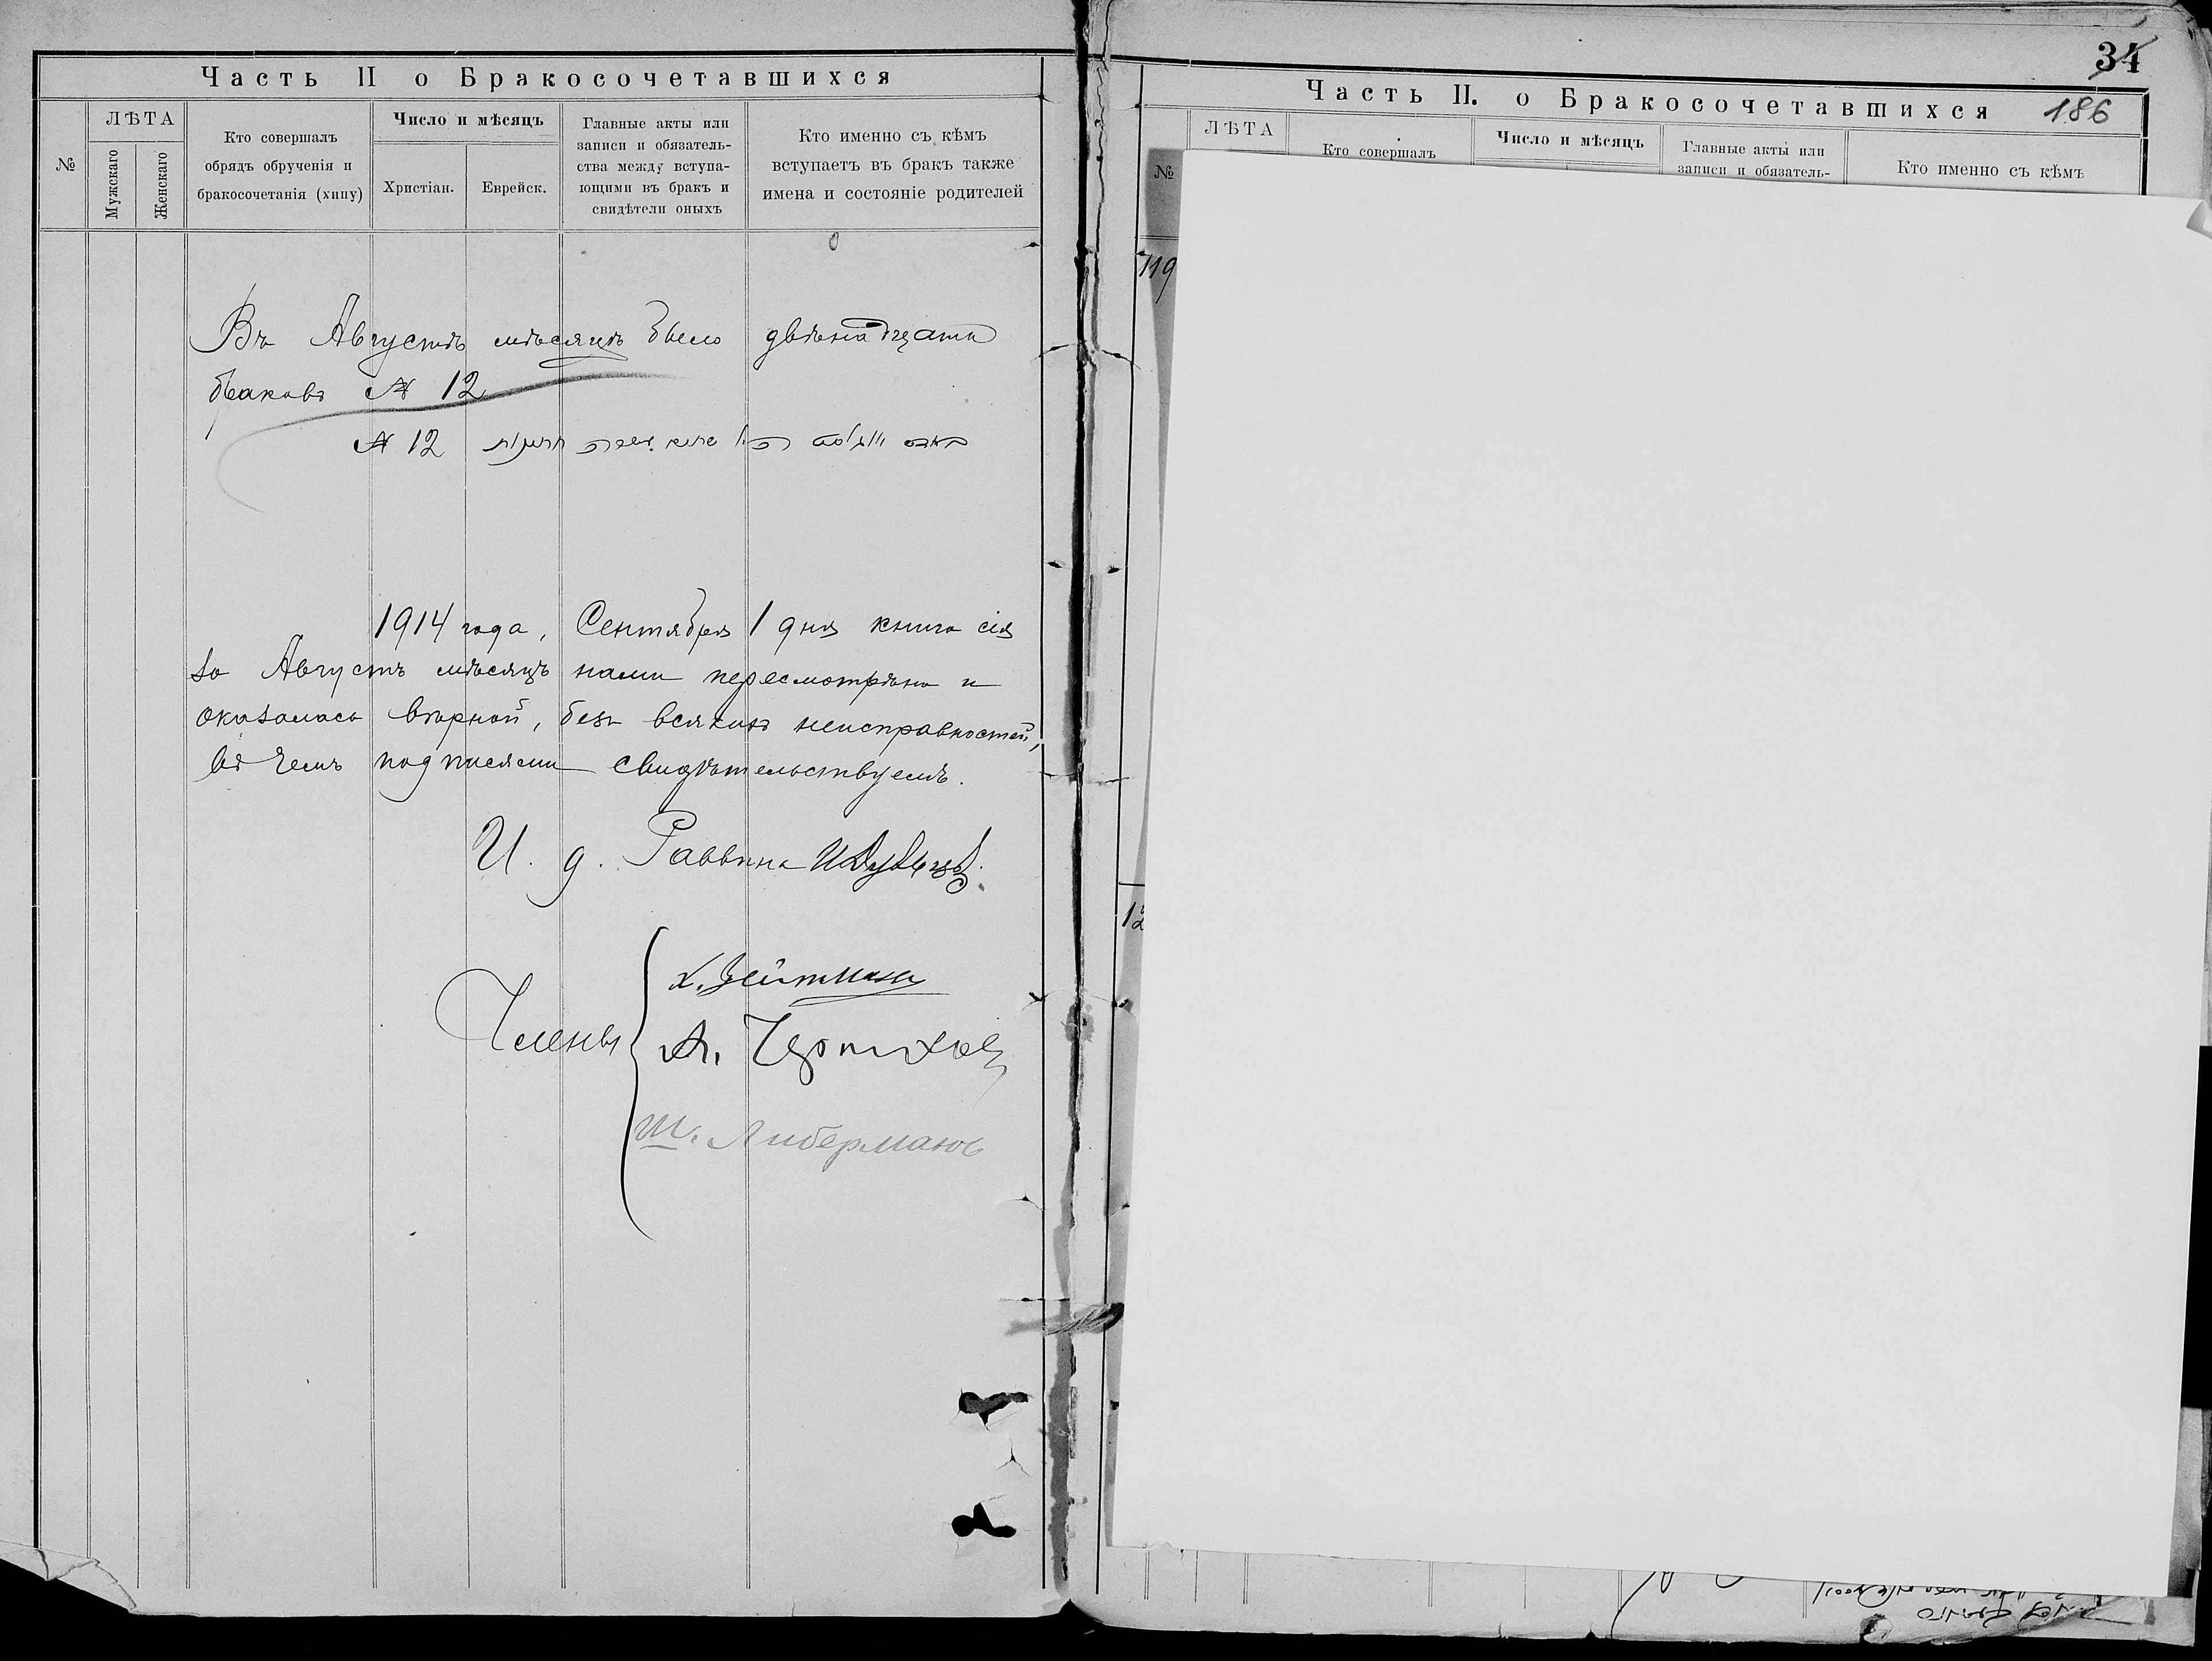 Часть II о Бракосочетавшихся
№
ЛѢТА
Мужскаго
Женскаго
Кто совершалъ
обрядъ обрученія и
бракосочетанія (хипу)
Число и мѣсяцъ
Христіан.
Еврейск.
Главные акты или
записи и обязатель-
ства между вступа-
ющими въ бракъ и
свидѣтели оныхъ
Кто именно съ кѣмъ
вступаетъ въ бракъ также
имена и состояніе родителей
Въ Августѣ мѣсяцѣ было двѣнадцать
браковъ № 12
№ 12
1914 года, Сентября 1 дня книга сія
за Августъ мѣсяцъ нами пересмотрѣна и
оказалась вѣрной, безъ всякихъ неисправностей,
въ чемъ подписями свидѣтельствуемъ.
И. д. Раввина
Члены
Х. Зейтманъ
А.
Ш. Либерманъ
34
Часть II. о Бракосочетавшихся
186
№
ЛѢТА
Кто совершалъ
Число и мѣсяцъ
Главные акты или
записи и обязатель-
Кто именно съ кѣмъ
119
12